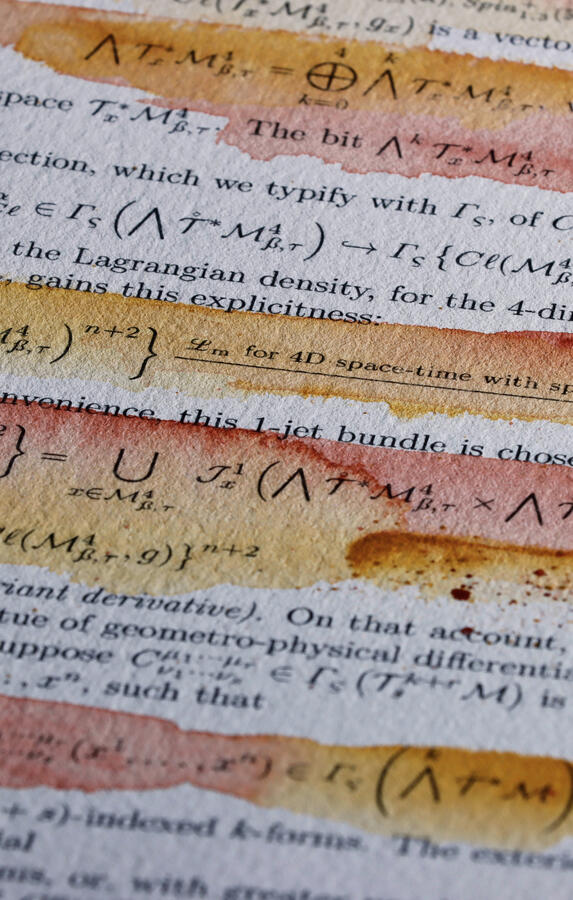 (T*ₓM⁴_{β,τ}, gₓ) is a vecto
⋀T*ₓM⁴_{β,τ} = ⊕⁴_{k=0} ⋀ᵏ T*ₓM⁴_{β,τ},
space T*ₓM⁴_{β,τ}. The bit ⋀ᵏ T*ₓM⁴_{β,τ}
ection, which we typify with Γ_ς, of C
∈ Γ_ς (⋀ T̊*M⁴_{β,τ}) ↪ Γ_ς {Cℓ(M⁴_{β,
the Lagrangian density, for the 4-di
, gains this explicitness:
M⁴_{β,τ})ⁿ⁺²} ℒₘ for 4D space-time with sp
nvenience, this 1-jet bundle is chose
} = ⋃_{x∈M⁴_{β,τ}} J¹ₓ(⋀ T̊*M⁴_{β,τ} × ⋀ T
ℓ(M⁴_{β,τ}, g)}ⁿ⁺²
riant derivative). On that account,
tue of geometro-physical differentia
uppose C^{μ₁⋯μᵣ}_{ν₁⋯νₛ} ∈ Γ_ς(Tₛᵏ⁺ʳM) is
, xⁿ, such that
(x¹, . . . , xⁿ) ∈ Γ_ς (⋀ᵏ T*M)
+ s)-indexed k-forms. The exteri
ial
or, with greater